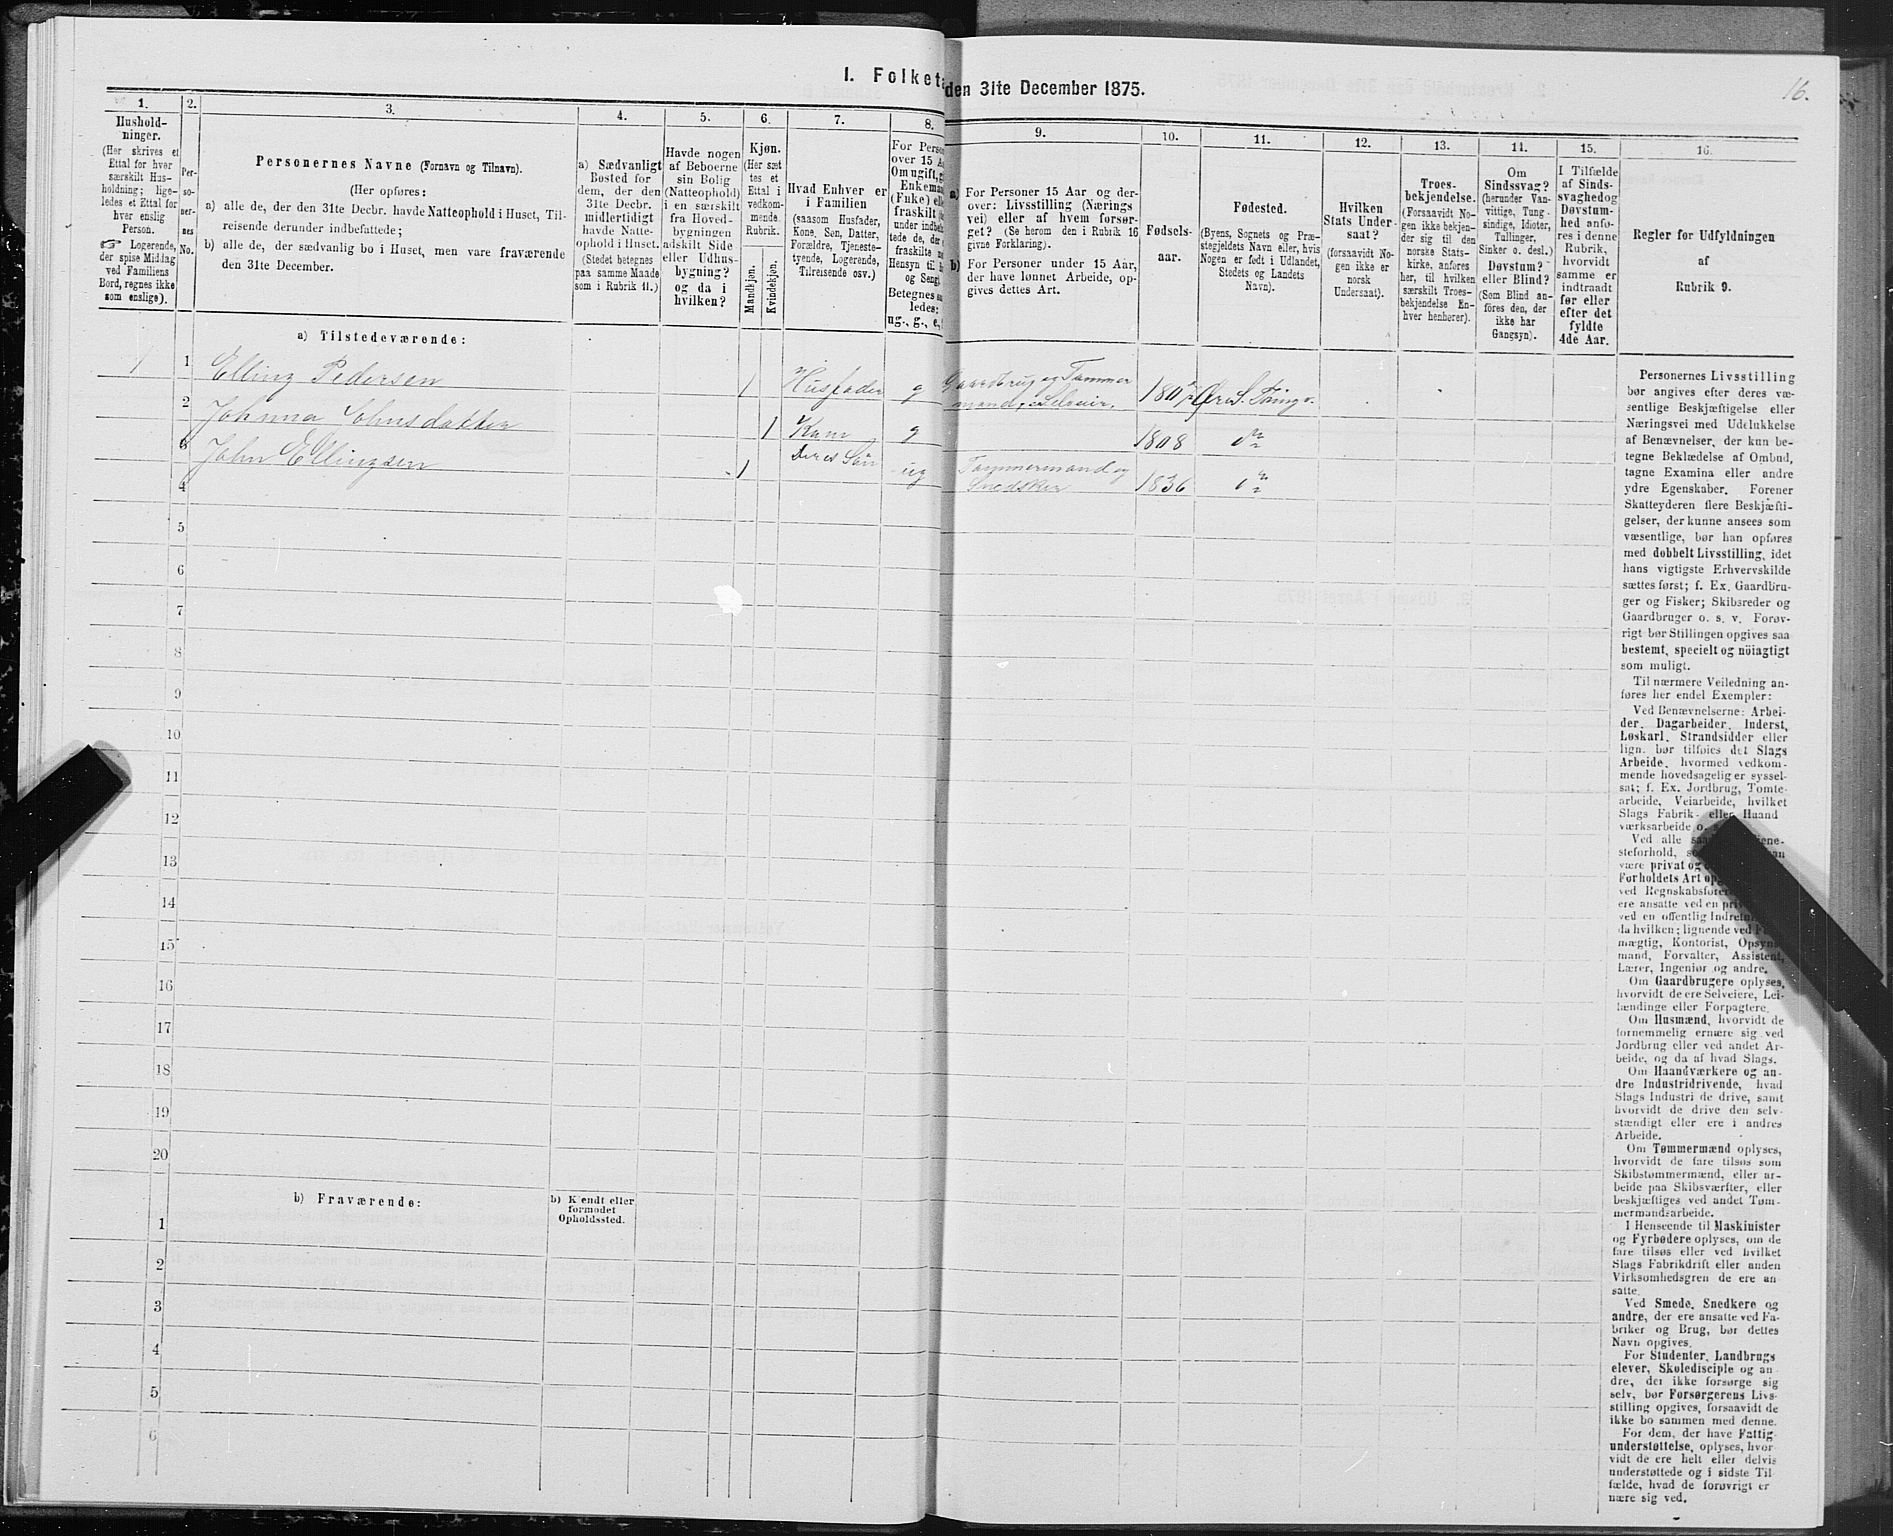 I. Folket
den 31te December 1875.
16.
1.
Hushold-
ninger.
(Her skrives et
Ettal for hver
særskilt Hus-
holdning; lige-
ledes et Ettal for
hver enslig
Person.
☞ Logerende,
der spise Middag
ved Familiens
Bord, regnes ikke
som enslige).
2.
Per-
so-
ner-
nes
No.
3.
Personernes Navne (Fornavn og Tilnavn).
(Her opføres:
a) alle de, der den 31te Decbr. havde Natteophold i Huset, Til-
reisende derunder indbefattede;
b) alle de, der sædvanlig bo i Huset, men vare fraværende
den 31te December.
4.
a) Sædvanligt
Bosted for
dem, der den
31te Decbr.
midlertidigt
havde Natte-
ophold i Huset.
(Stedet betegnes
paa samme Maade
som i Rubrik 11.)
5.
Havde nogen
af Beboerne
sin Bolig
(Natteophold)
i en særskilt
fra Hoved-
bygningen
adskilt Side
eller Udhus-
bygning?
og da i
hvilken?
6.
Kjøn.
(Her sæt
tes et
Ettal i
vedkom-
mende
Rubrik.
Mandkjøn.
Kvindekjøn.
7.
Hvad Enhver er
i Familien
(saasom Husfader,
Kone, Søn, Datter,
Forældre, Tjeneste-
tyende, Logerende,
Tilreisende osv.)
8.
For Perso
over 15 A
Om ugift, g
Enkeman
(Enke) elle
fraskilt
under indbef
tede de, der
fraskilte
Hensyn til
og Seng
Betegnes
ledes:
ug., g., e.,
9.
a) For Personer 15 Aar og der-
over: Livsstilling (Nærings
vei) eller af hvem forsør-
get? (Se herom den i Rubrik 16
givne Forklaring).
b) For Personer under 15 Aar,
der have lønnet Arbeide, op-
gives dettes Art.
10.
Fødsels-
aar.
11.
Fødested.
(Byens, Sognets og Præ-
stegjeldets Navn eller, hvis
Nogen er født i Udlandet,
Stedets og Landets
Navn).
12.
Hvilken
Stats Under-
saat?
(forsaavidt No-
gen ikke er
norsk
Undersaat).
13.
Troes-
bekjendelse.
(Forsaavidt No-
gen ikke bekjen-
der sig til den
norske Stats-
kirke, anføres
her, til hvilken
særskilt Troes-
bekjendelse En-
hver henhører).
14.
Om
Sindssvag?
(herunder Van-
vittige, Tung-
sindige, Idioter,
Tullinger,
Sinker o. desl.)
Døvstum?
eller Blind?
(Som Blind an-
føres den, der
ikke har
Gangsyn).
15.
I Tilfælde
af Sinds-
svaghedog
Døvstum-
hed anfø-
res i denne
Rubrik,
hvorvidt
samme er
indtraadt
før eller
efter det
fyldte
4de Aar.
16.
Regler for Udfyldningen
af
Rubrik 9.
a) Tilstedeværende:
1 1 Elling Pedersen 1 Husfader g Gaardbrug og Tømmer
mand, Selveier. 180
2 Johnna Johnsdatter 1 Kone g 1808 do
3 John Ellingsen 1 Deres Søn ug Tømmermand og
Snedsker 1836 do
4
5
6
7
8
9
10
11
12
13
14
15
16
17
18
19
20
b) Fraværende:
b) Kjendt eller
formodet
Opholdssted.
1
2
3
4
5
6
Personernes Livsstilling
bør angives efter deres væ-
sentlige Beskjæftigelse eller
Næringsvei med Udelukkelse
af Benævnelser, der kun be-
tegne Beklædelse af Ombud,
tagne Examina eller andre
ydre Egenskaber. Forener
Skatteyderen flere Beskjæfti-
gelser, der kunne ansees som
væsentlige, bør han opføres
med dobbelt Livsstilling, idet
hans vigtigste Erhvervskilde
sættes først; f. Ex. Gaardbru-
ger og Fisker; Skibsreder og
Gaardbruger o. s. v. Forøv-
rigt bør Stillingen opgives saa
bestemt, specielt og nöiagtigt
som muligt.
Til nærmere Veiledning an-
føres her endel Exempler:
Ved Benævnelserne: Arbei-
der, Dagarbeider, Inderst,
Løskarl, Strandsidder eller
lign. bør tilføies det Slags
Arbeide, hvormed vedkom-
mende hovedsagelig er syssel-
sat; f. Ex. Jordbrug, Tomte-
arbeide, Veiarbeide, hvilket
Slags Fabrik- eller Haand
værksarbeide o.
Ved alle
steforhold,
være privat og
Forholdets Art
ved Regnskabsføre
ere ansatte ved en
ved en offentlig Indret
da hvilken; lignende ved
mægtig, Kontorist, Opsyns
mand, Forvalter, Assistent,
Lærer, Ingeniør og andre.
Om Gaardbrugere oplyses,
hvorvidt de ere Selveiere, Lei-
lændinge eller Forpagtere.
Om Husmænd, hvorvidt de
fornemmelig ernære sig ved
Jordbrug eller ved andet Ar-
beide, og da af hvad Slags.
Om Haandværkere og an-
dre Industridrivende, hvad
Slags Industri de drive, samt
hvorvidt de drive den selv-
stændigt eller ere i andres
Arbeide.
Om Tømmermænd oplyses,
hvorvidt de fare tilsøs som
Skibstømmermænd, eller ar-
beide paa Skibsværfter, eller
beskjæftiges ved andet Tøm-
mermandsarbeide.
I Henseende til Maskinister
og Fyrbødere oplyses, om de
fare tilsøs eller ved hvilket
Slags Fabrikdrift eller anden
Virksomhedsgren de ere an
satte.
Ved Smede, Snedkere og
andre, der ere ansatte ved Fa-
briker og Brug, bør dettes
Navn opgives.
For Studenter, Landbrugs
elever, Skoledisciple og an
dre, der ikke forsørge sig
selv, bør Forsørgerens Livs-
stilling opgives, forsaavidt de
ikke bo sammen med denne.
For dem, der have Fattig-
understøttelse, oplyses, hvor-
vidt de ere helt eller delvis
understøttede og i sidste Til-
fælde, hvad de forøvrigt er
nære sig ved.